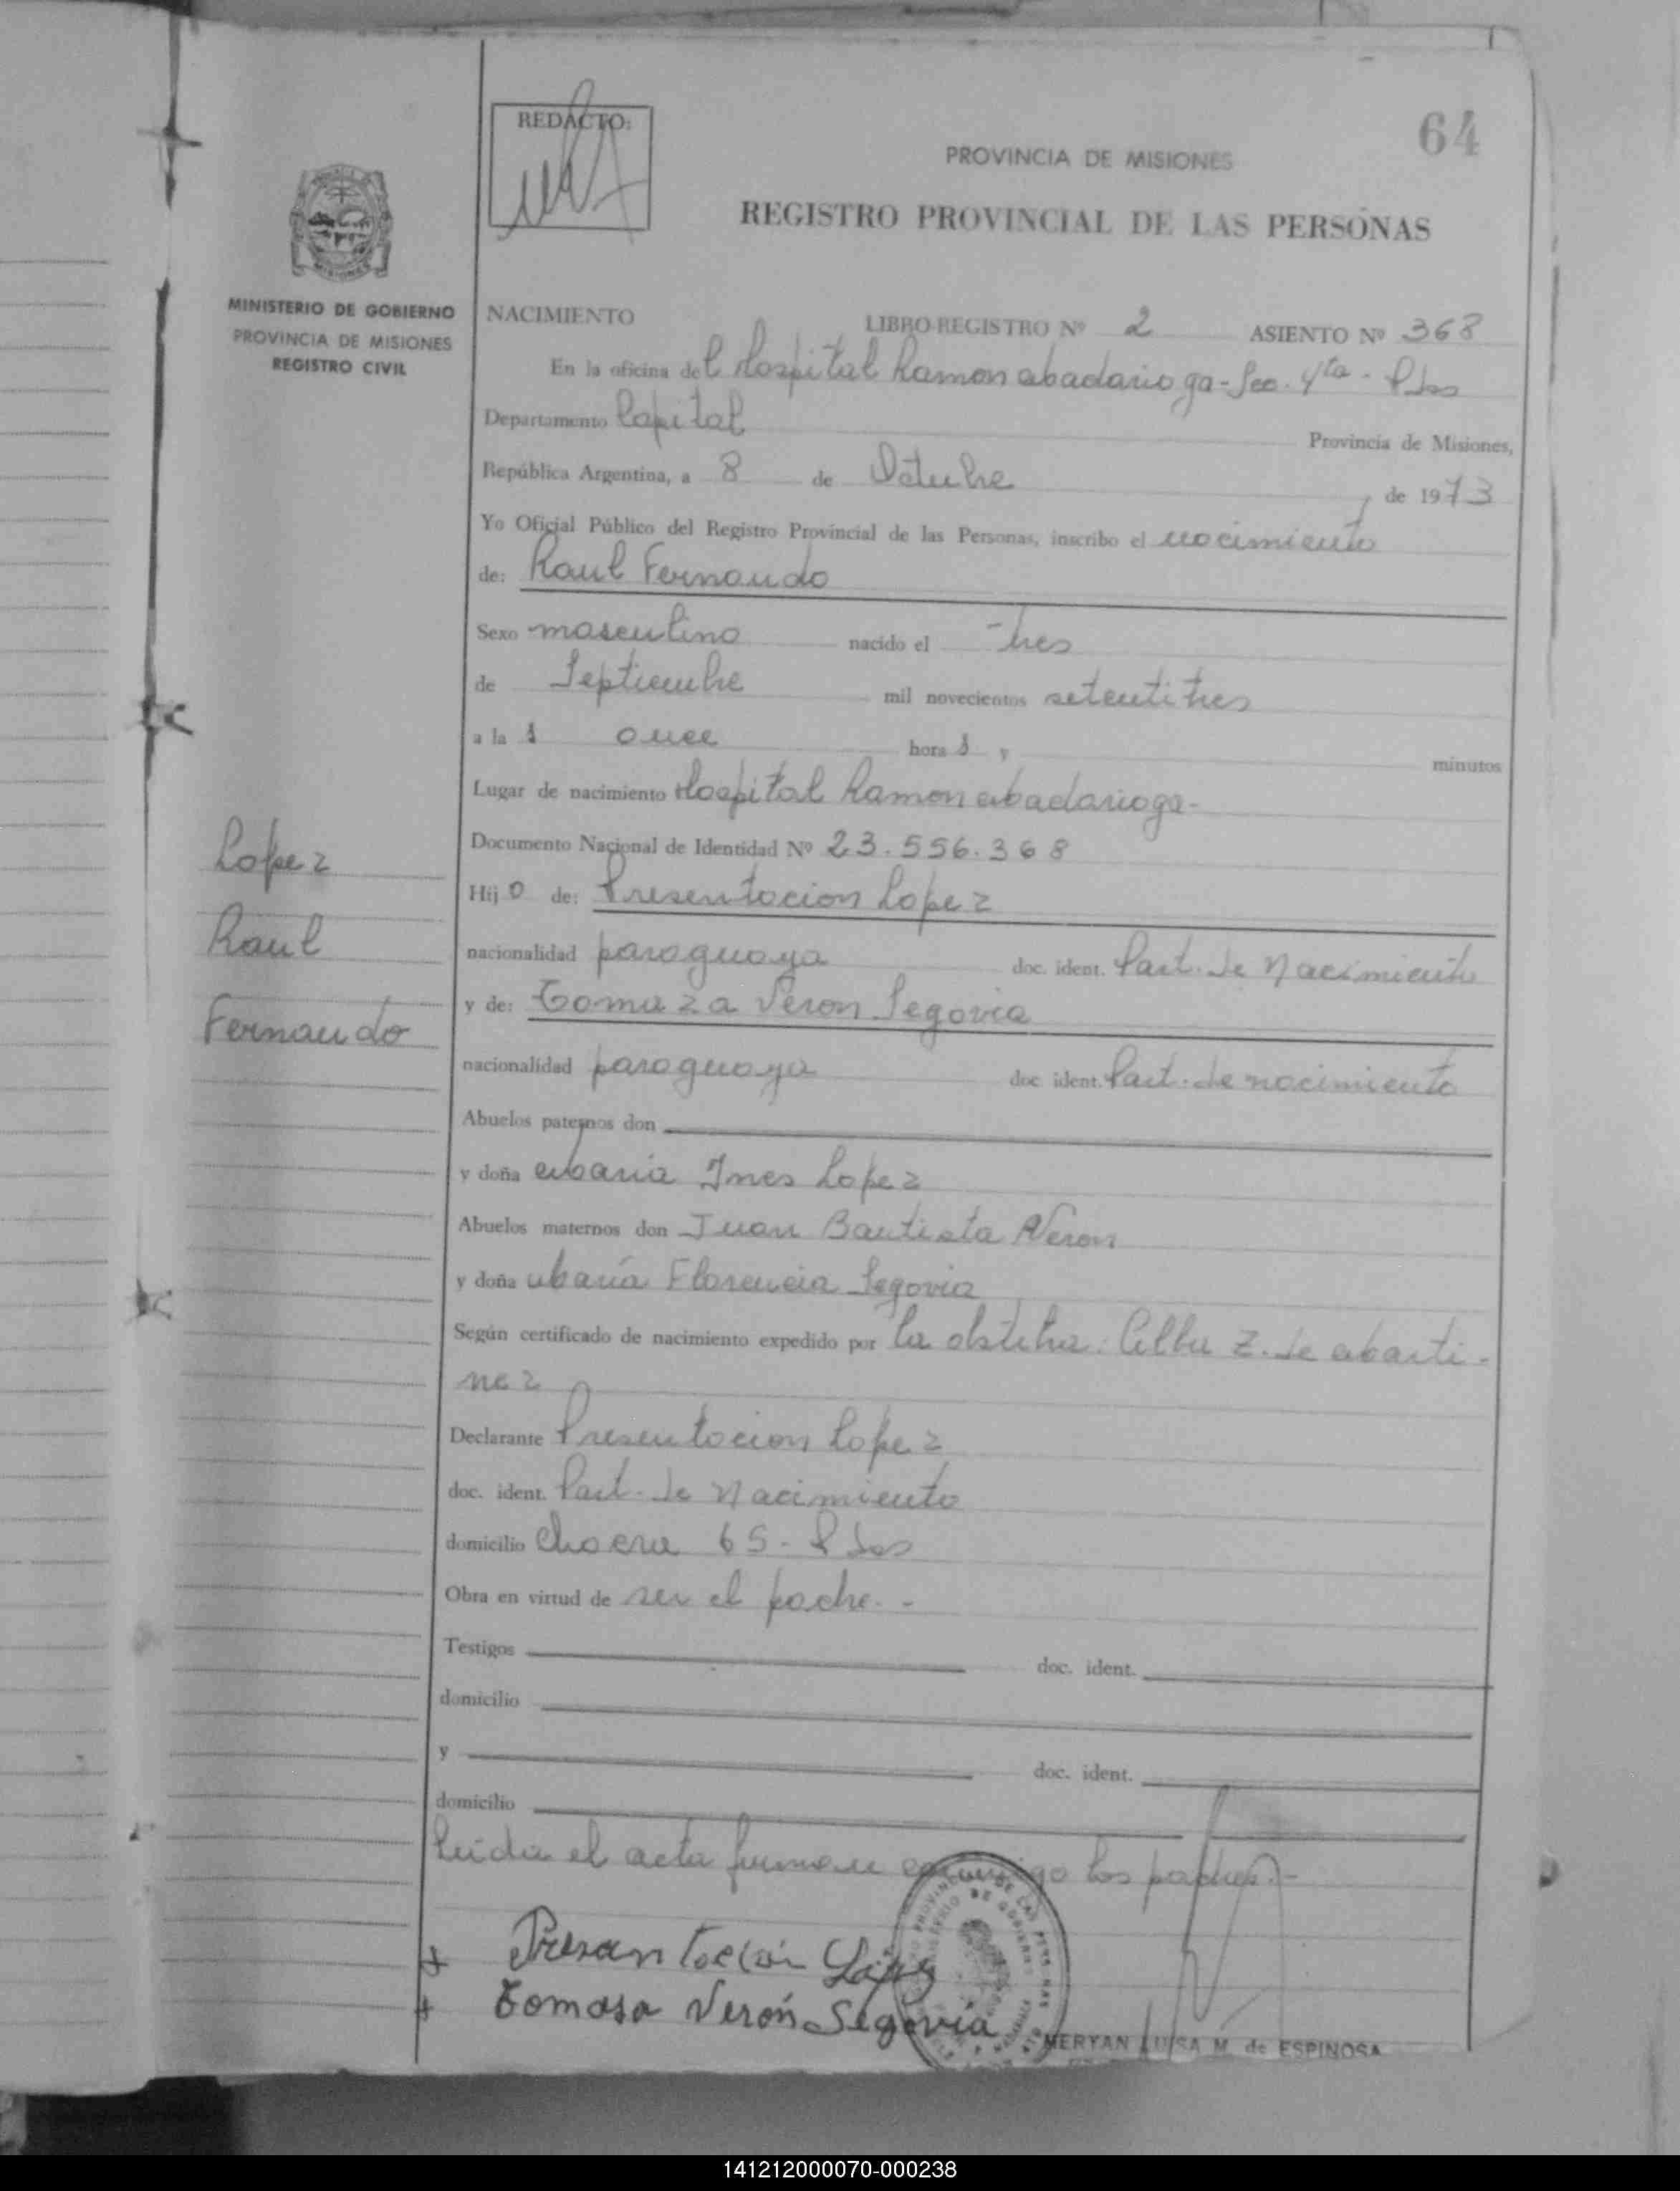 64
REDACTO:
PROVINCIA DE MISIONES
REGISTRO PROVINCIAL DE LAS PERSONAS
MINISTERIO DE GOBIERNO
PROVINCIA DE MISIONES
REGISTRO CIVIL
NACIMIENTO LIBRO-REGISTRO Nº 2 ASIENTO Nº 368
En la oficina del Hospital Ramon Madariaga - Sec. 4ta - Pdas
Departamento Capital Provincia de Misiones,
República Argentina, a 8 de Octubre, de 1973
Yo Oficial Público del Registro Provincial de las Personas, inscribo el nacimiento
de: Raul Fernando
Sexo masculino nacido el tres
de Septiembre mil novecientos setentitres
a la s once hora s y minutos
Lugar de nacimiento Hospital Ramon Madariaga-
Documento Nacional de Identidad Nº 23.556.368
Hij o de: Presentacion Lopez
nacionalidad paraguaya doc. ident. Part. de Nacimiento
y de: Tomaza Veron Segovia
nacionalidad paraguaya doc ident. Part. de nacimiento
Abuelos paternos don
y doña Maria Ines Lopez
Abuelos maternos don Juan Bautista Veron
y doña María Florencia Segovia
Según certificado de nacimiento expedido por la obstetra: Alba Z. de Marti-
nez
Declarante Presentacion Lopez
doc. ident. Part. de Nacimiento
domicilio Chacra 65 - Pdas
Obra en virtud de ser el padre.-
Testigos doc. ident.
domicilio
y doc. ident.
domicilio
Leida el acta firman conmigo los padres.-
Lopez
Raul
Fernando
Presentación López
Tomasa Verón Segovia
MERYAN LUISA M. de ESPINOSA
141212000070-000238